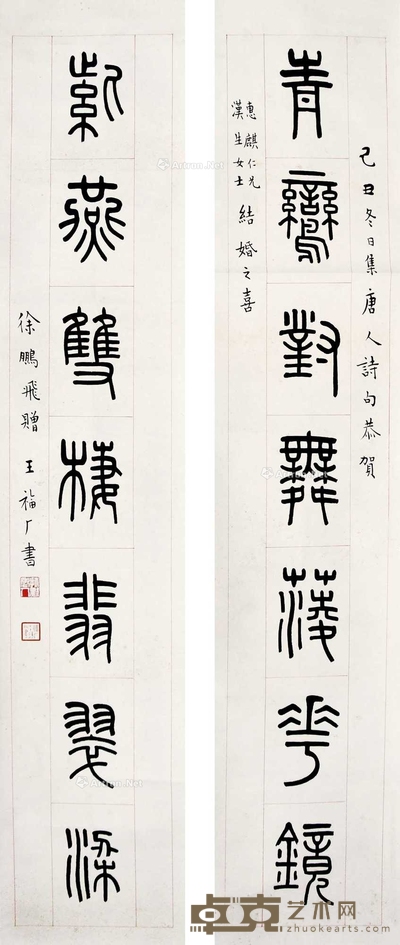 己丑冬日集唐人詩句恭賀
青鸞對舞蔆花鏡
惠麒仁兄
漢生女士
結婚之喜
紫燕雙棲翡翠梁
徐鵬飛贈 王福厂書
Artron.Net
卓克艺术网
zhuokearts.com